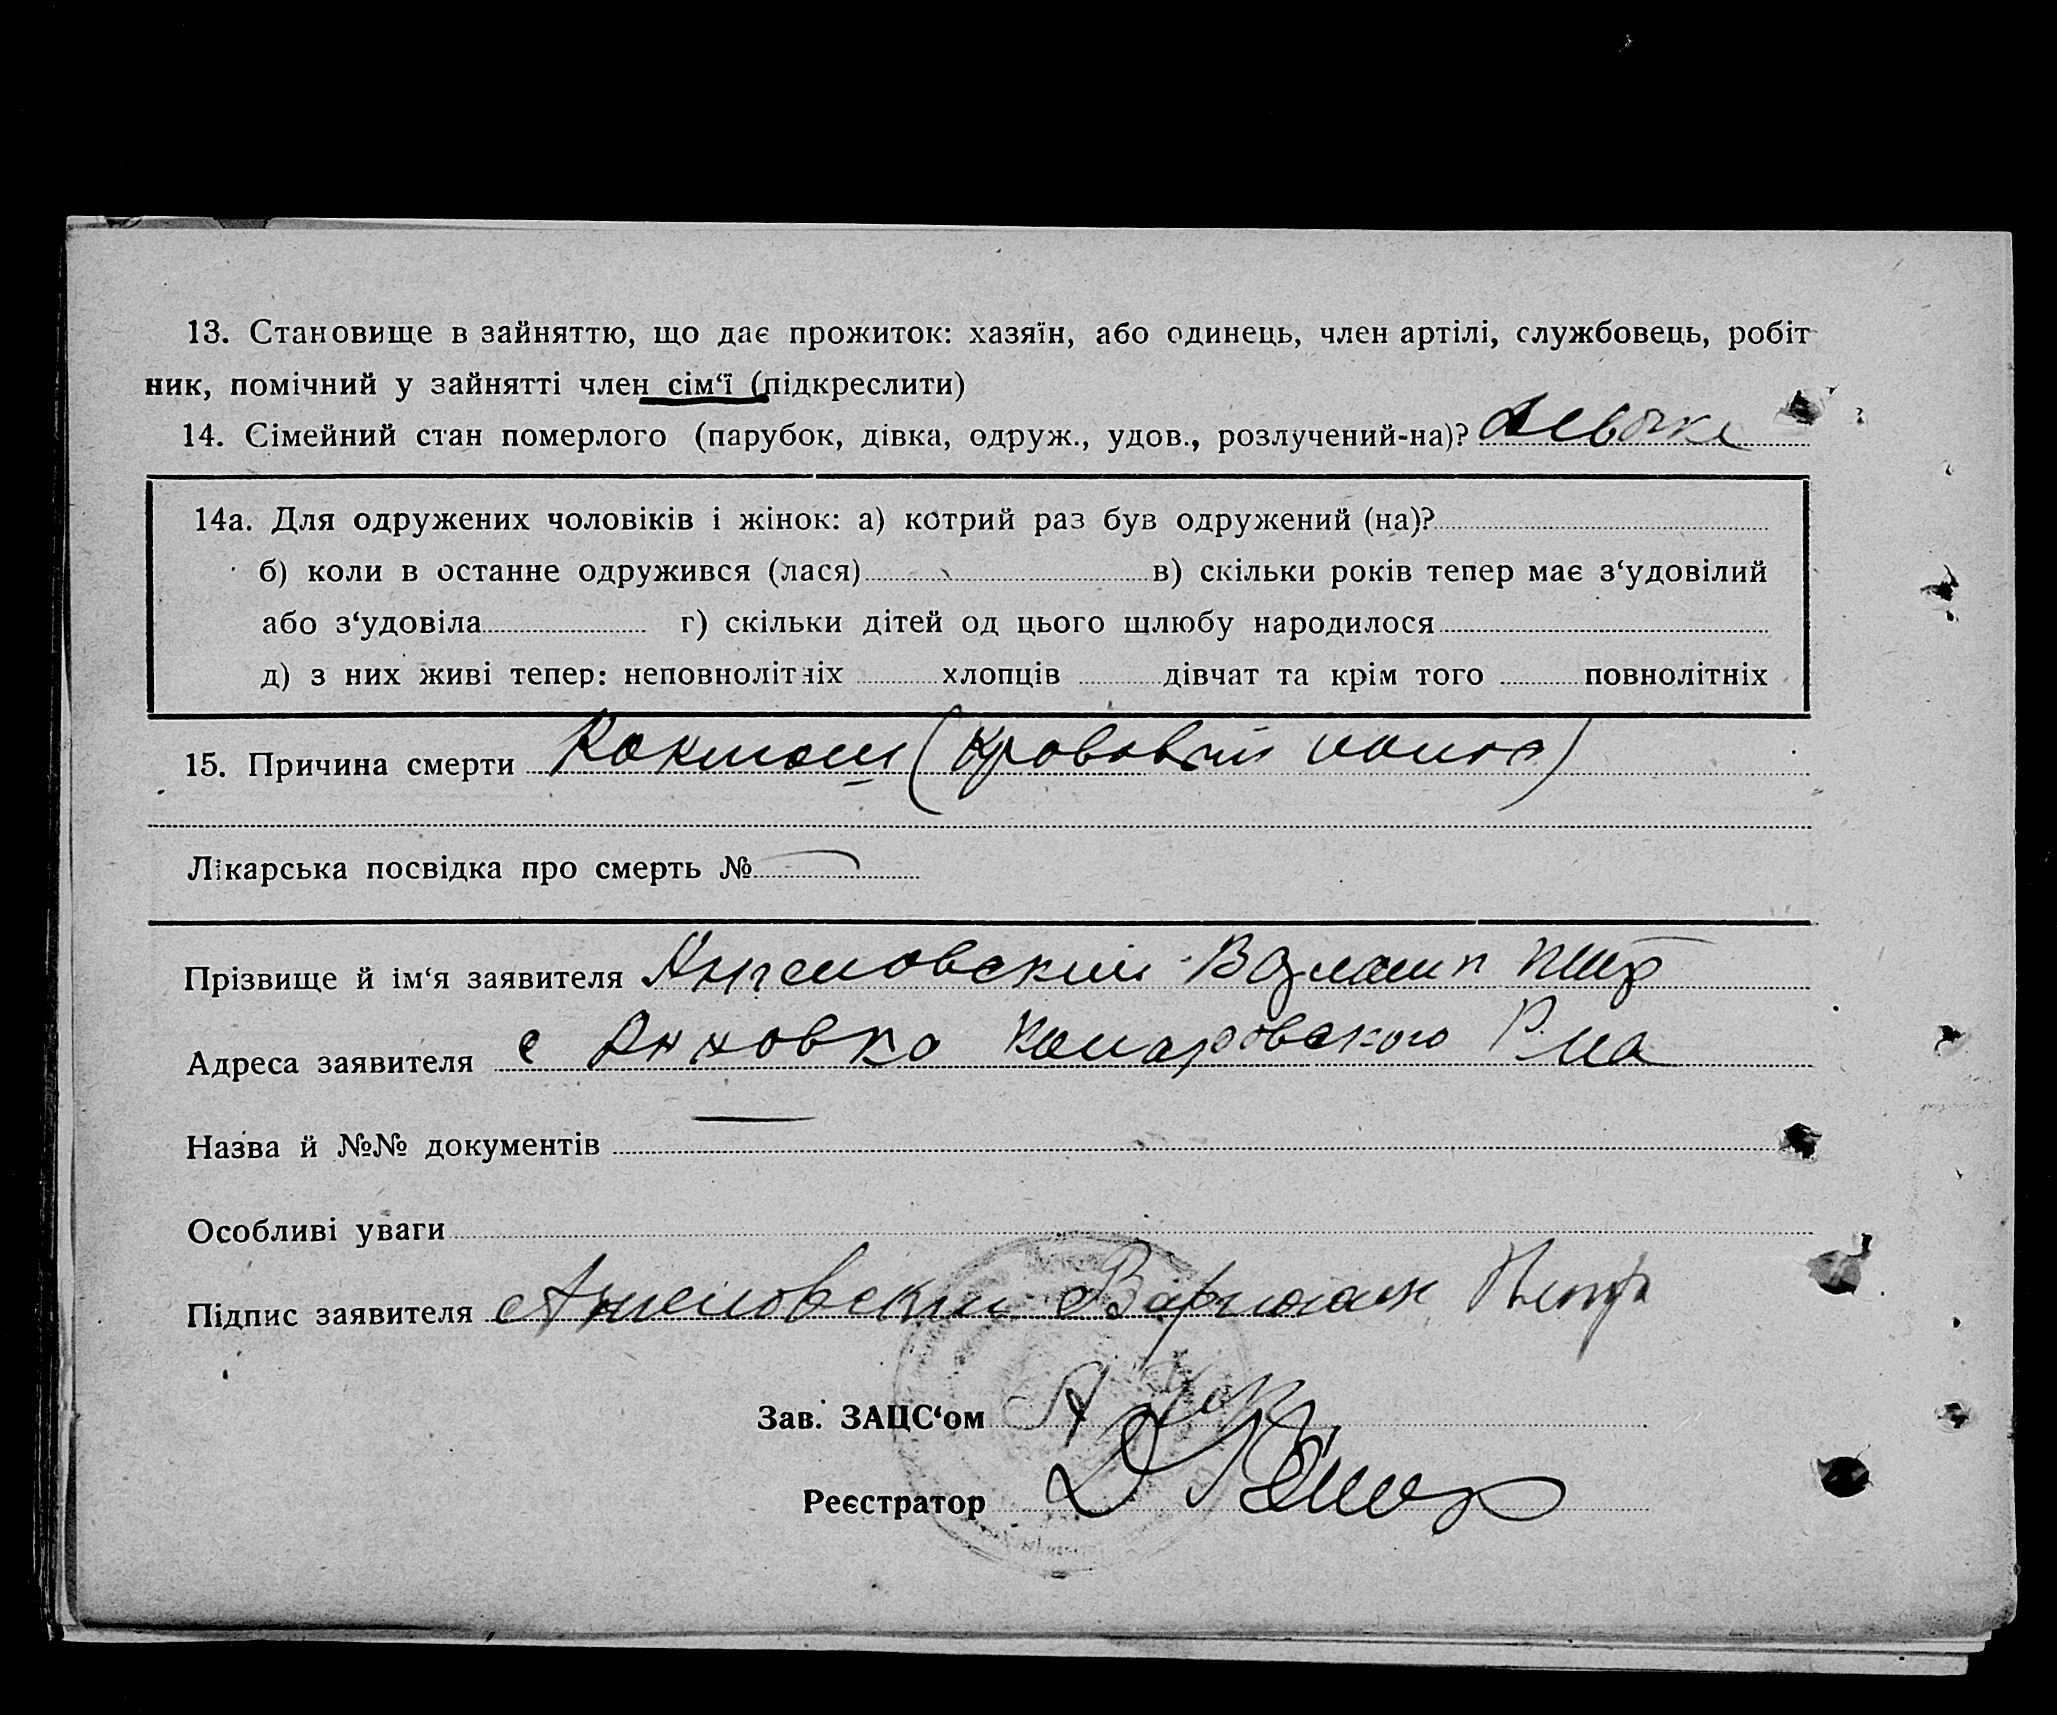 13. Становище в зайняттю, що дає прожиток: хазяїн, або одинець, член артілі, службовець, робіт
ник, помічний у зайнятті член сім‘ї (підкреслити)
14. Сімейний стан померлого (парубок, дівка, одруж., удов., розлучений-на)? девочка
14а. Для одружених чоловіків і жінок: а) котрий раз був одружений (на)?
б) коли в останнє одружився (лася) в) скільки років тепер має з‘удовілий
або з‘удовіла г) скільки дітей од цього шлюбу народилося
д) з них живі тепер: неповнолітніх хлопців дівчат та крім того повнолітніх
15. Причина смерти (кровавый понос)
Лікарська посвідка про смерть №
Прізвище й ім‘я заявителя Ангеловский
Адреса заявителя с Анновка Комаровского Р-на
Назва й №№ документів
Особливі уваги
Підпис заявителя Ангеловский
Зав. ЗАЦС‘ом
Реєстратор